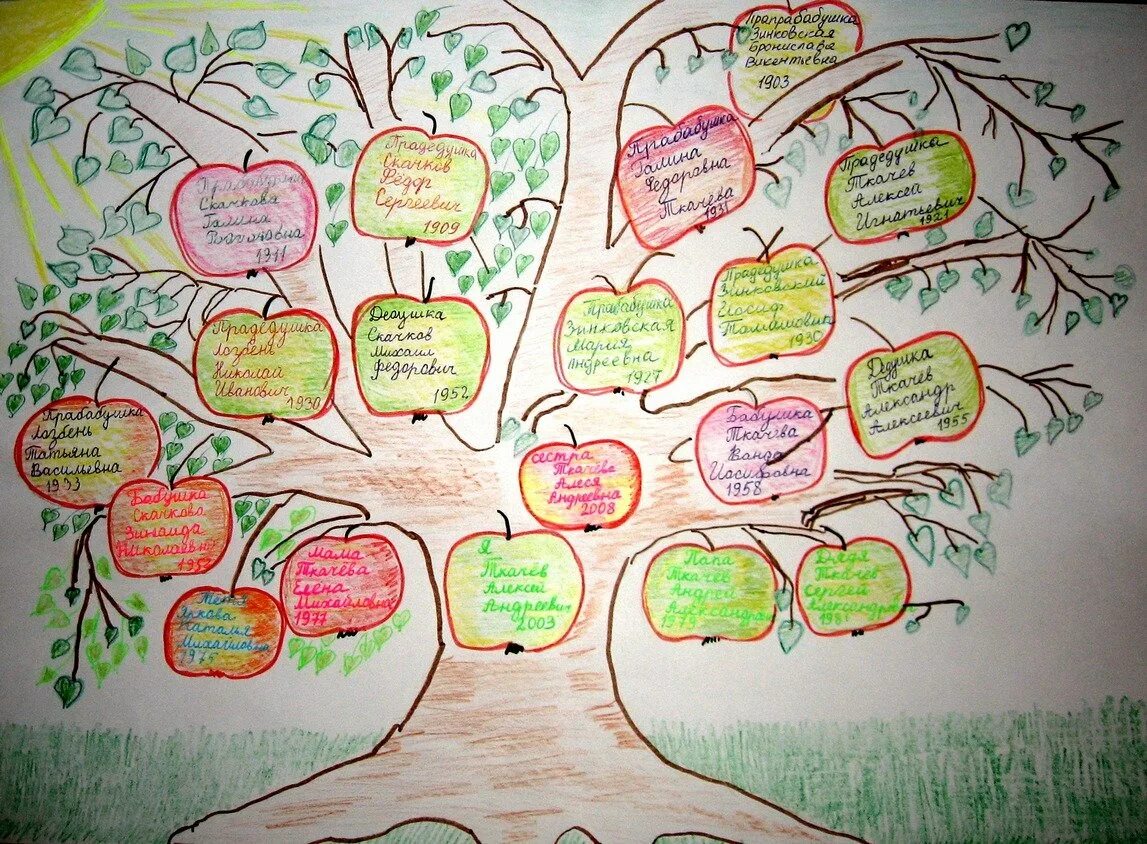 Прапрабабушка
Зинковская
Бронислава
Викентьевна
1903
Прабабушка
Галина
Федоровна
Ткачева
1931
Прадедушка
Ткачев
Алексей
Игнатьевич
1921
Прадедушка
Скачков
Фёдор
Сергеевич
1909
Прабабушка
Скачкова
Галина
1911
Прадедушка
Зинковский
Иосиф
1930
Прабабушка
Зинковская
Мария
Андреевна
1927
Дедушка
Скачков
Михаил
Федорович
1952
Прадедушка
Лозбень
Николай
Иванович
1930
Дедушка
Ткачев
Александр
Алексеевич
1955
Прабабушка
Лозбень
Татьяна
Васильевна
1933
Бабушка
Ткачёва
Ванда
Иосифовна
1958
сестра
Ткачёва
Алеся
Андреевна
2008
Бабушка
Скачкова
Зинаида
Николаевна
Мама
Ткачёва
Елена
Михайловна
1977
Я
Ткачёв
Алексей
Андреевич
2003
Папа
Ткачёв
Андрей
Александр
1979
Дядя
Ткачёв
Сергей
Александр
1981
Тётя
Наталья
Михайловна
1975